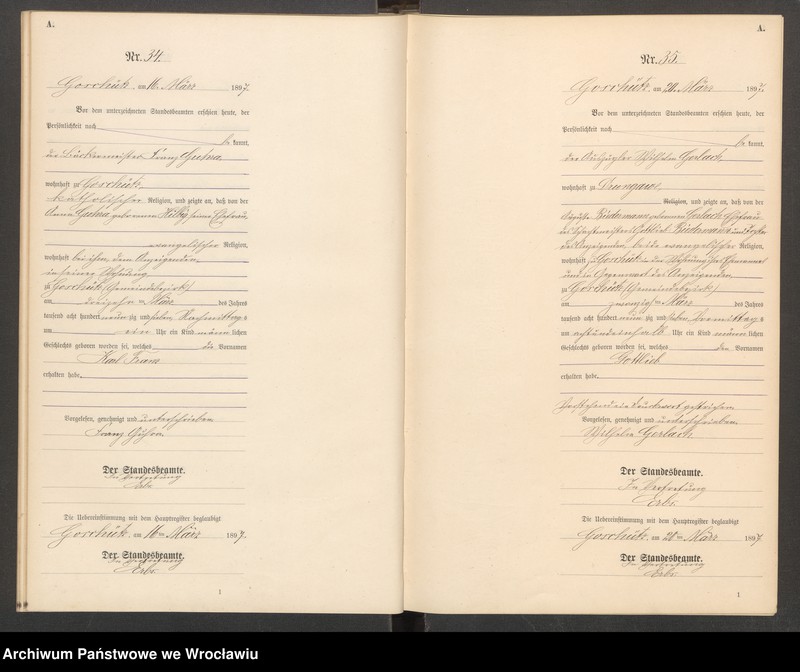 A.
Nr. 34.
Goschütz, am 16. März 1897.
Vor dem unterzeichneten Standesbeamten erschien heute, der
Persönlichkeit nach
be kannt,
der Bäckermeister Franz
wohnhaft zu Goschütz,
katholischer Religion, und zeigte an, daß von der
Anna geborenen Helbig, seiner Ehefrau,
evangelischer Religion,
wohnhaft bei ihm, dem Anzeigenden
in seiner Wohnung
zu Goschütz (Gemeindebezirk)
am dreizehn ten März des Jahres
tausend acht hundert neun zig und sieben, Nachmittags
um ein Uhr ein Kind männ lichen
Geschlechts geboren worden sei, welches die Vornamen
Karl Franz
erhalten habe.
Vorgelesen, genehmigt und unterschrieben
Franz
Der Standesbeamte.
In Vertretung
Erbr.
Die Uebereinstimmung mit dem Hauptregister beglaubigt
Goschütz, am 16ten März 1897.
Der Standesbeamte.
In Vertretung
Erbr.
1
A.
Nr. 35.
Goschütz, am 20. März 1897.
Vor dem unterzeichneten Standesbeamten erschien heute, der
Persönlichkeit nach
be kannt,
der Auszügler Wilhelm Gerlach,
wohnhaft zu Drungawe,
Religion, und zeigte an, daß von der
Auguste Biedermann geborenen Gerlach, Ehefrau
des Gottlieb Biedermann und Tochter
des Anzeigenden, beide evangelischer Religion,
wohnhaft zu Goschütz in der Wohnung ihres Ehemannes
und in Gegenwart des Anzeigenden
zu Goschütz (Gemeindebezirk)
am zwanzig ten März des Jahres
tausend acht hundert neun zig und sieben, Vormittags
um achteinhalb Uhr ein Kind männ lichen
Geschlechts geboren worden sei, welches den Vornamen
Gottlieb
erhalten habe.
Vorstehend ein Druckwort gestrichen
Vorgelesen, genehmigt und unterschrieben
Wilhelm Gerlach.
Der Standesbeamte.
In Vertretung
Erbr.
Die Uebereinstimmung mit dem Hauptregister beglaubigt
Goschütz, am 20ten März 1897.
Der Standesbeamte.
In Vertretung
Erbr.
1
Archiwum Państwowe we Wrocławiu